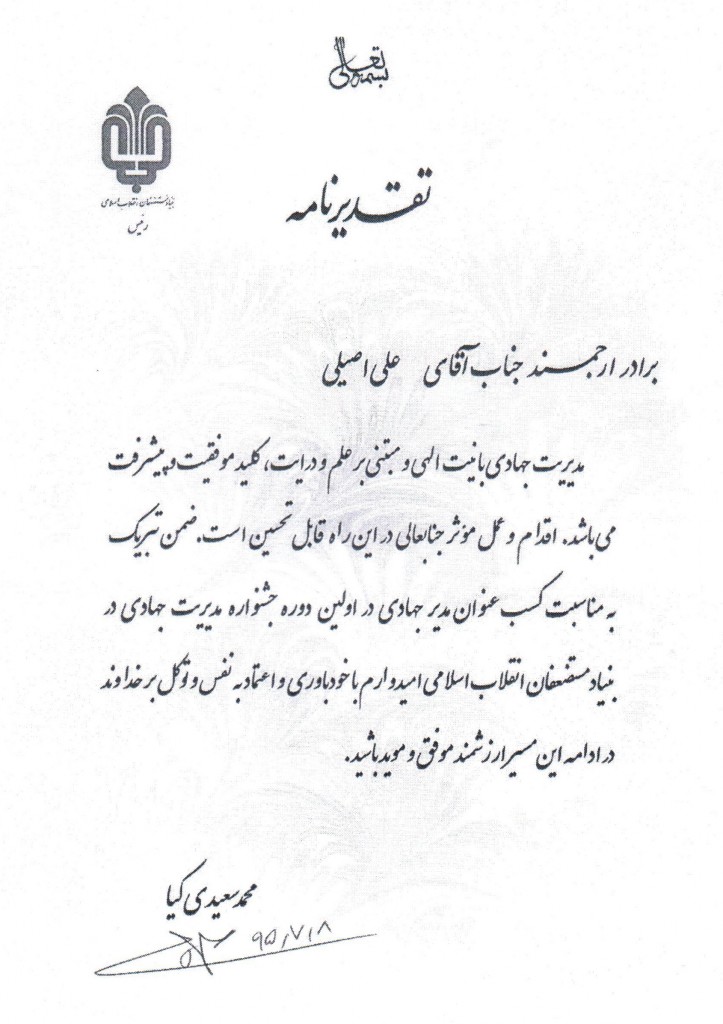 بسمه تعالی
بنیاد مستضعفان انقلاب اسلامی
رئیس
تقدیرنامه
برادر ارجمند جناب آقای علی اصیلی
مدیریت جهادی با نیت الهی و مبتنی بر علم و درایت، کلید موفقیت و پیشرفت
می باشد. اقدام و عمل مؤثر جنابعالی در این راه قابل تحسین است. ضمن تبریک
به مناسبت کسب عنوان مدیر جهادی در اولین دوره جشنواره مدیریت جهادی در
بنیاد مستضعفان انقلاب اسلامی امیدوارم با خودباوری و اعتماد به نفس و توکل بر خداوند
در ادامه این مسیر ارزشمند موفق و موید باشید.
محمد سعیدی کیا
۹۵٫۷٫۸